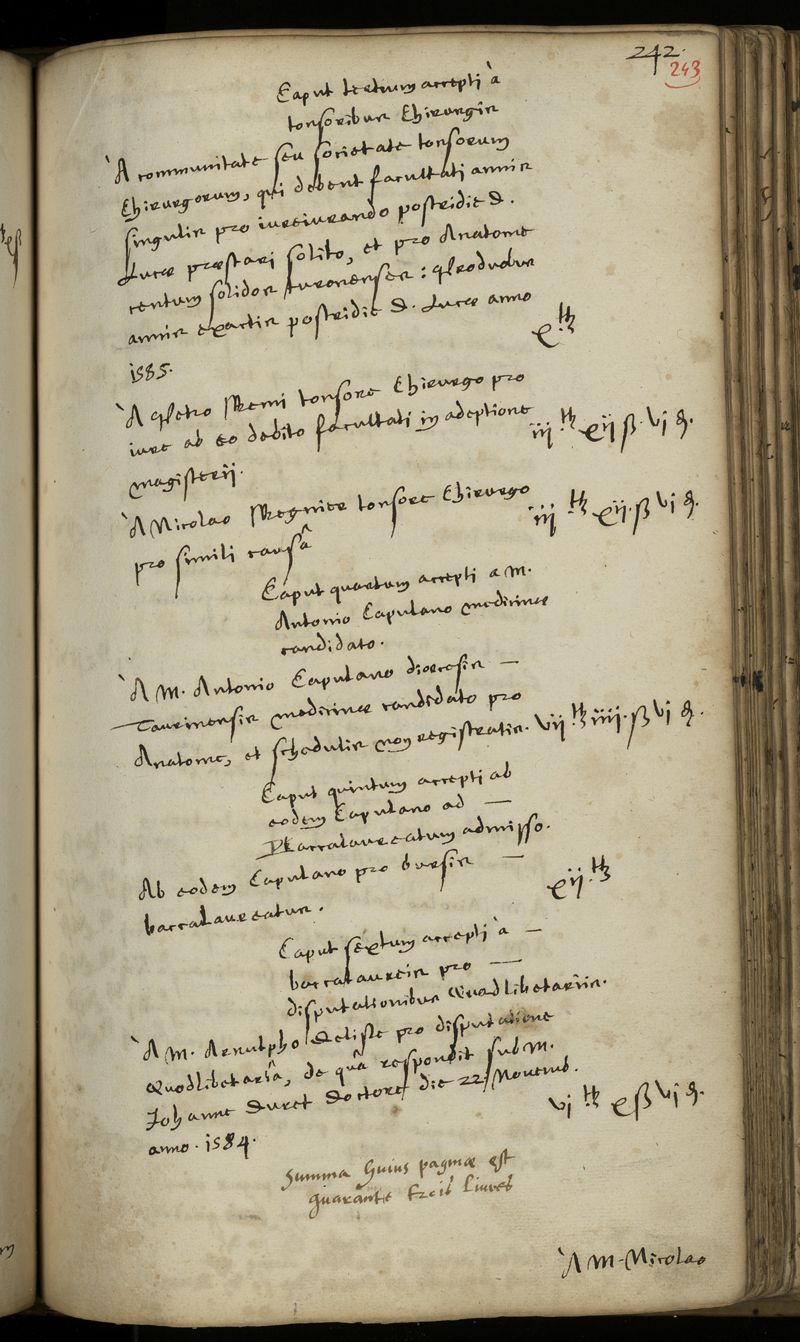 242.
243
Caput tertium accepti à
tonsoribus Chirurgis
A communitate seu societate tonsorum
Chirurgorum, qui debent facultati annis
singulis pro iureiurando postridie D.
Lucæ præstari solito, et pro Anatome
centum solidos turonenses: pro duobus
annis exactis postridie D. Lucæ anno
1585. x ℔
A Petro Remi tonsore Chirurgo pro
iure ab eo debito facultati in adeptione iij ℔ xij ß vj d.
magisterij.
A Nicolao Regnier tonsore Chirurgo
pro simili causâ iij ℔ xij ß vj d.
Caput quartum accepti a M.
Antonio Capulano medicinæ
candidato.
A M. Antonio Capulano diœcesis —
Taurinensis medicinæ candidato pro
Anatome, et schedulis non registratis. vij ℔ iiij ß vj d.
Caput quintum accepti ab
eodem Capulano ad —
Baccalaureatum admisso.
Ab eodem Capulano pro bursis —
baccalaureatus. xij ℔
Caput sextum accepti à —
baccalaureis pro —
disputationibus Quodlibetariis.
A M. Arnulpho Delisle pro disputatione
Quodlibetariâ, de quâ respondit sub M.
Johanne Duret doctore die 22 Novemb.
anno 1584. vj ℔ x ß vj d.
Summa huius paginæ est
quarante trois livres
A M. Nicolao